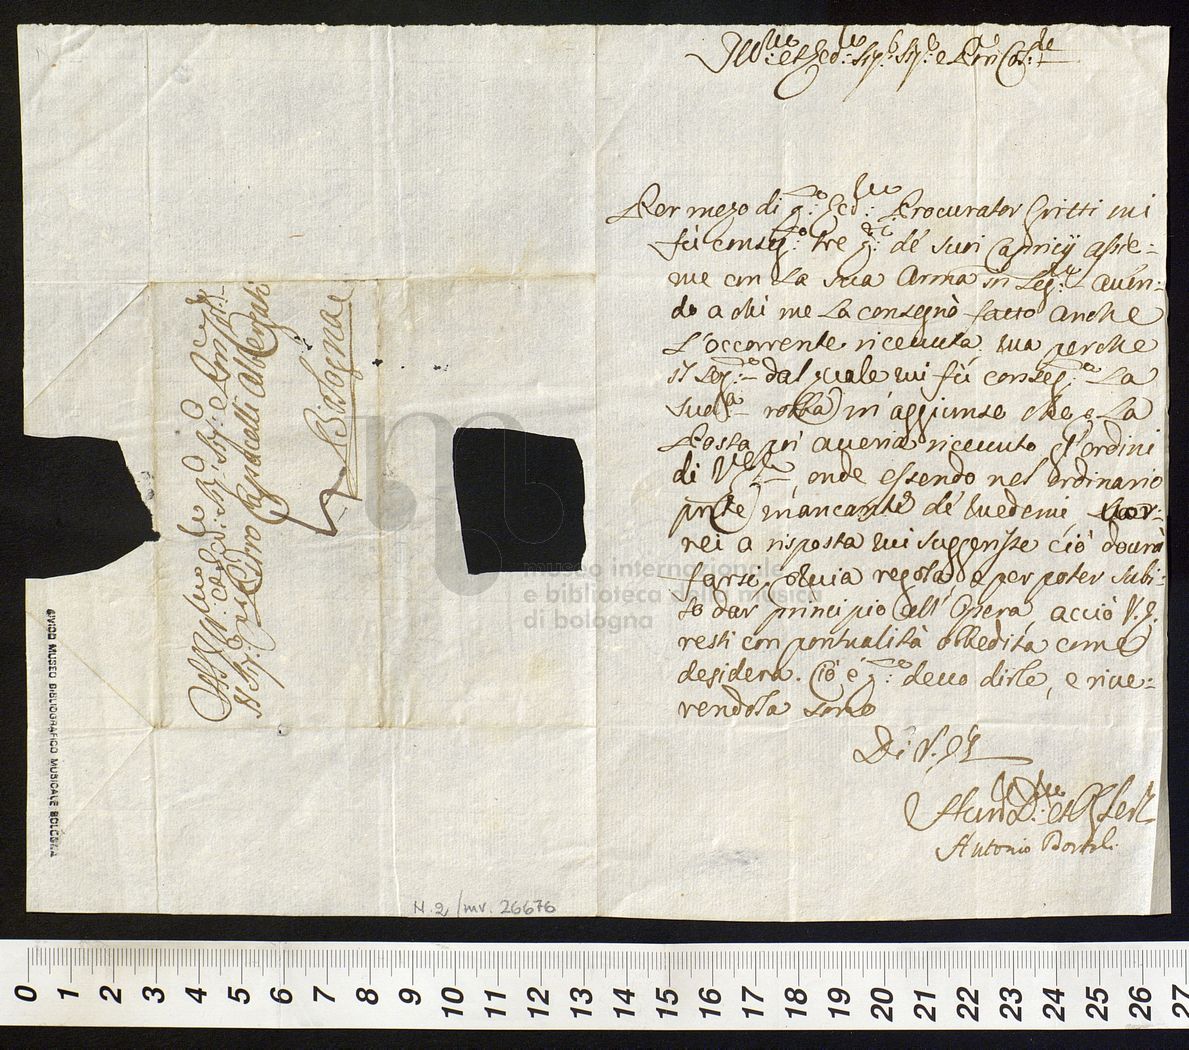 Ill:mo et Ecc:mo Sig:r Sig:r e Pron Col:mo
Per mezo di q:to Ecc:mo Procurator Gritti mi
fù conseg:to tre q:ti de suoi Capricij assie-
me con La sua Arma in Leg:no avén-
do a chi me La consegnò fatto anche
L'occorrente ricevuta. Ma perche
il Leg:to dal quale mi fù conseg:ta La
sud:ta robba m'aggiunse che La
Posta io averia ricevuto gl'ordini
di V E, onde essendo nel ordinario
pnte mancante de medemi, vor-
rei a risposta mi suggerisse ciò dourà
farsi, per poter subi-
to dar principio all'Opera, acciò V. E.
resti con pontualità obbedita come
desidera. Ciò é q:to devo dirle, e rive-
rendola sono
Di V. E
Antonio Bortoli
All Ill:mo
Il Sig:r
Pirro Capacelli Albergati
Bologna
CIVICO MUSEO BIBLIOGRAFICO MUSICALE BOLOGNA
N. 2 / mv. 26676
museo internazionale
e biblioteca della musica
di bologna
0 1 2 3 4 5 6 7 8 9 10 11 12 13 14 15 16 17 18 19 20 21 22 23 24 25 26 27